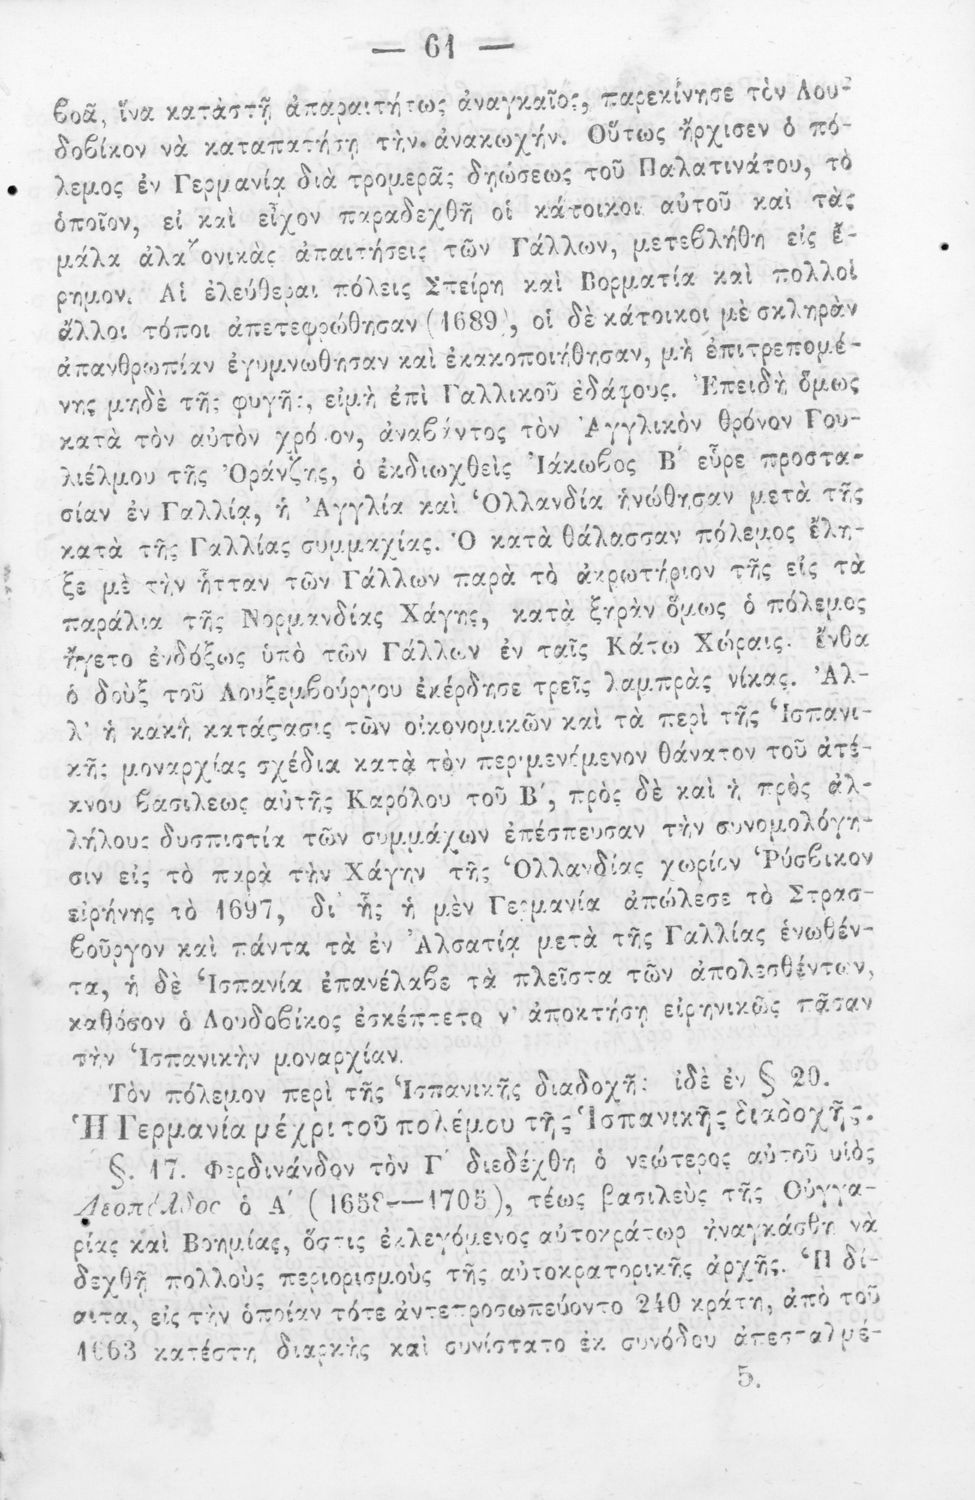 — 61 —
βοᾶ, ἵνα καταστῇ ἀπαραιτήτως ἀναγκαῖος, παρεκίνησε τὸν Λου-
δοβίκον νὰ καταπατήσῃ τὴν ἀνακωχήν. Οὕτως ἤρχισεν ὁ πό-
λεμος ἐν Γερμανίᾳ διὰ τρομερᾶς δηώσεως τοῦ Παλατινάτου, τὸ
ὁποῖον, εἰ καὶ εἶχον παραδεχθῆ οἱ κάτοικοι αὐτοῦ καὶ τὰς
μάλα ἀλαζονικὰς ἀπαιτήσεις τῶν Γάλλων, μετεβλήθη εἰς ἔ-
ρημον. Αἱ ἐλεύθεραι πόλεις Σπείρη καὶ Βορματία καὶ πολλοὶ
ἄλλοι τόποι ἀπετεφρώθησαν (1689), οἱ δὲ κάτοικοι μὲ σκληρὰν
ἀπανθρωπίαν ἐγυμνώθησαν καὶ ἐκακοποιήθησαν, μὴ ἐπιτρεπομέ-
νης μηδὲ τῆς φυγῆς, εἰμὴ ἐπὶ Γαλλικοῦ ἐδάφους. Ἐπειδὴ ὅμως
κατὰ τὸν αὐτὸν χρόνον, ἀναβάντος τὸν Ἀγγλικὸν θρόνον Γου-
λιέλμου τῆς Ὀράνζης, ὁ ἐκδιωχθεὶς Ἰάκωβος Β΄ εὗρε προστα-
σίαν ἐν Γαλλίᾳ, ἡ Ἀγγλία καὶ Ὁλλανδία ἡνώθησαν μετὰ τῆς
κατὰ τῆς Γαλλίας συμμαχίας. Ὁ κατὰ θάλασσαν πόλεμος ἔλη-
ξε μὲ τὴν ἧτταν τῶν Γάλλων παρὰ τὸ ἀκρωτήριον τῆς εἰς τὰ
παράλια τῆς Νορμανδίας Χάγης, κατὰ ξηρὰν ὅμως ὁ πόλεμος
ἤγετο ἐνδόξως ὑπὸ τῶν Γάλλων ἐν ταῖς Κάτω Χώραις· ἔνθα
ὁ δοὺξ τοῦ Λουξεμβούργου ἐκέρδησε τρεῖς λαμπρὰς νίκας. Ἀλ-
λ' ἡ κακὴ κατάστασις τῶν οἰκονομικῶν καὶ τὰ περὶ τῆς Ἱσπανι-
κῆς μοναρχίας σχέδια κατὰ τὸν περιμενόμενον θάνατον τοῦ ἀτέ-
κνου βασιλεως αὐτῆς Καρόλου τοῦ Β΄, πρὸς δὲ καὶ ἡ πρὸς ἀλ-
λήλους δυσπιστία τῶν συμμάχων ἐπέσπευσαν τὴν συνομολόγη-
σιν εἰς τὸ παρὰ τὴν Χάγην τῆς Ὁλλανδίας χωρίον Ῥύσβικον
εἰρήνης τὸ 1697, δι' ἧς ἡ μὲν Γερμανία ἀπώλεσε τὸ Στρασ-
βοῦργον καὶ πάντα τὰ ἐν Ἀλσατίᾳ μετὰ τῆς Γαλλίας ἑνωθέν-
τα, ἡ δὲ Ἱσπανία ἐπανέλαβε τὰ πλεῖστα τῶν ἀπολεσθέντων,
καθόσον ὁ Λουδοβίκος ἐσκέπτετο ν' ἀποκτήσῃ εἰρηνικῶς πᾶσαν
τὴν Ἱσπανικὴν μοναρχίαν.
Τὸν πόλεμον περὶ τῆς Ἱσπανικῆς διαδοχῆς ἰδὲ ἐν § 20.
Ἡ Γερμανία μέχρι τοῦ πολέμου τῆς Ἱσπανικῆς διαδοχῆς.
§. 17. Φερδινάνδον τὸν Γ΄ διεδέχθη ὁ νεώτερος αὐτοῦ υἱὸς
Λεοπόλδος ὁ Α΄ (1658—1705), τέως βασιλεὺς τῆς Οὑγγα-
ρίας καὶ Βοημίας, ὅστις ἐκλεγόμενος αὐτοκράτωρ ἠναγκάσθη νὰ
δεχθῇ πολλοὺς περιορισμοὺς τῆς αὐτοκρατορικῆς ἀρχῆς. Ἡ δί-
αιτα, εἰς τὴν ὁποίαν τότε ἀντεπροσωπεύοντο 240 κράτη, ἀπὸ τοῦ
1663 κατέστη διαρκὴς καὶ συνίστατο ἐκ συνόδου ἀπεσταλμέ-
5.